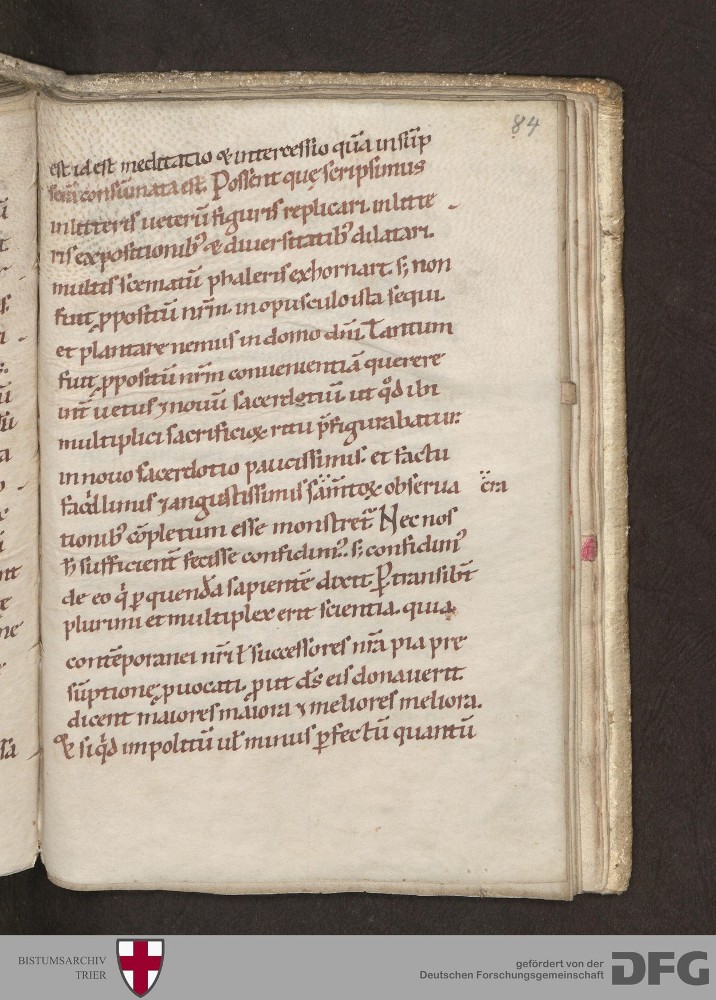 84
est id est meditatio & intercessio quā insūp
consūmata est. Possent quę scripsimus
in litteris ueterū figuris replicari. in litte-
ris expositionib; & diuersitatib; dilatari.
multis scematū phaleris exhornari. s; non
fuit ꝓpositū nr̄m in opusculo ista sequi.
et plantare nemus in domo dn̄i. Tantum
fuit ꝓpositū nr̄m conuenientiā querere
int̄ uetus ⁊ nouū sacerdotiū. ut qd ibi
multiplici sacrificioꝝ ritu p̄figurabatur.
in nouo sacerdotio paucissimis. et factu
facillimis ⁊ angustissimis sāmtoꝝ obserua cr̄a
tionib; cōpletum esse monstret. Nec nos
sufficient̄ fecisse confidim;. s; confidim;
de eo q ꝑ quenda sapientē dixit. Ꝑtransibt̄
plurimi et multiplex erit scientia. quia
contēporanei nr̄i ł successores nr̄a pia pre
sūptione ꝓuocati. ꝓut ds̄ eis donauerit.
dicent maiores maiora ⁊ meliores meliora.
& siqd impolitū uł minus ꝑfectū quantū
ū
sa
BISTUMSARCHIV
TRIER
gefördert von der
Deutschen Forschungsgemeinschaft
DFG